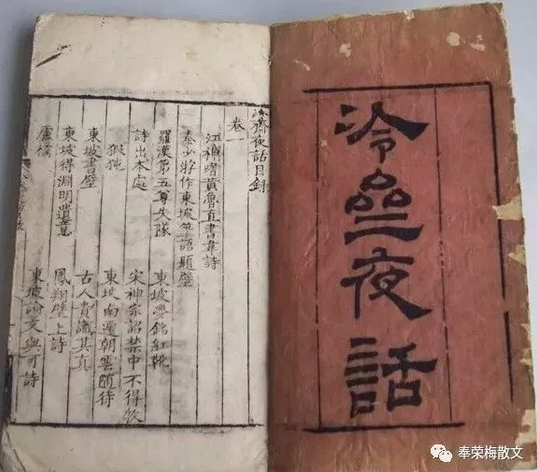 冷亝夜話
冷齋夜話目錄
卷一
江神嗜黃魯直書韋詩
秦少游作東坡筆語題壁
羅漢第五尊失隊 東坡夢銘紅靴
詩出本處 宋神宗詔禁中不得牧
猳㹠 東坡南遷朝雲隨侍
東坡書壁 古人貴識其真
東坡得淵明遺意 鳳翔壁上詩
盧橘 東坡論文與可詩
奉荣梅散文